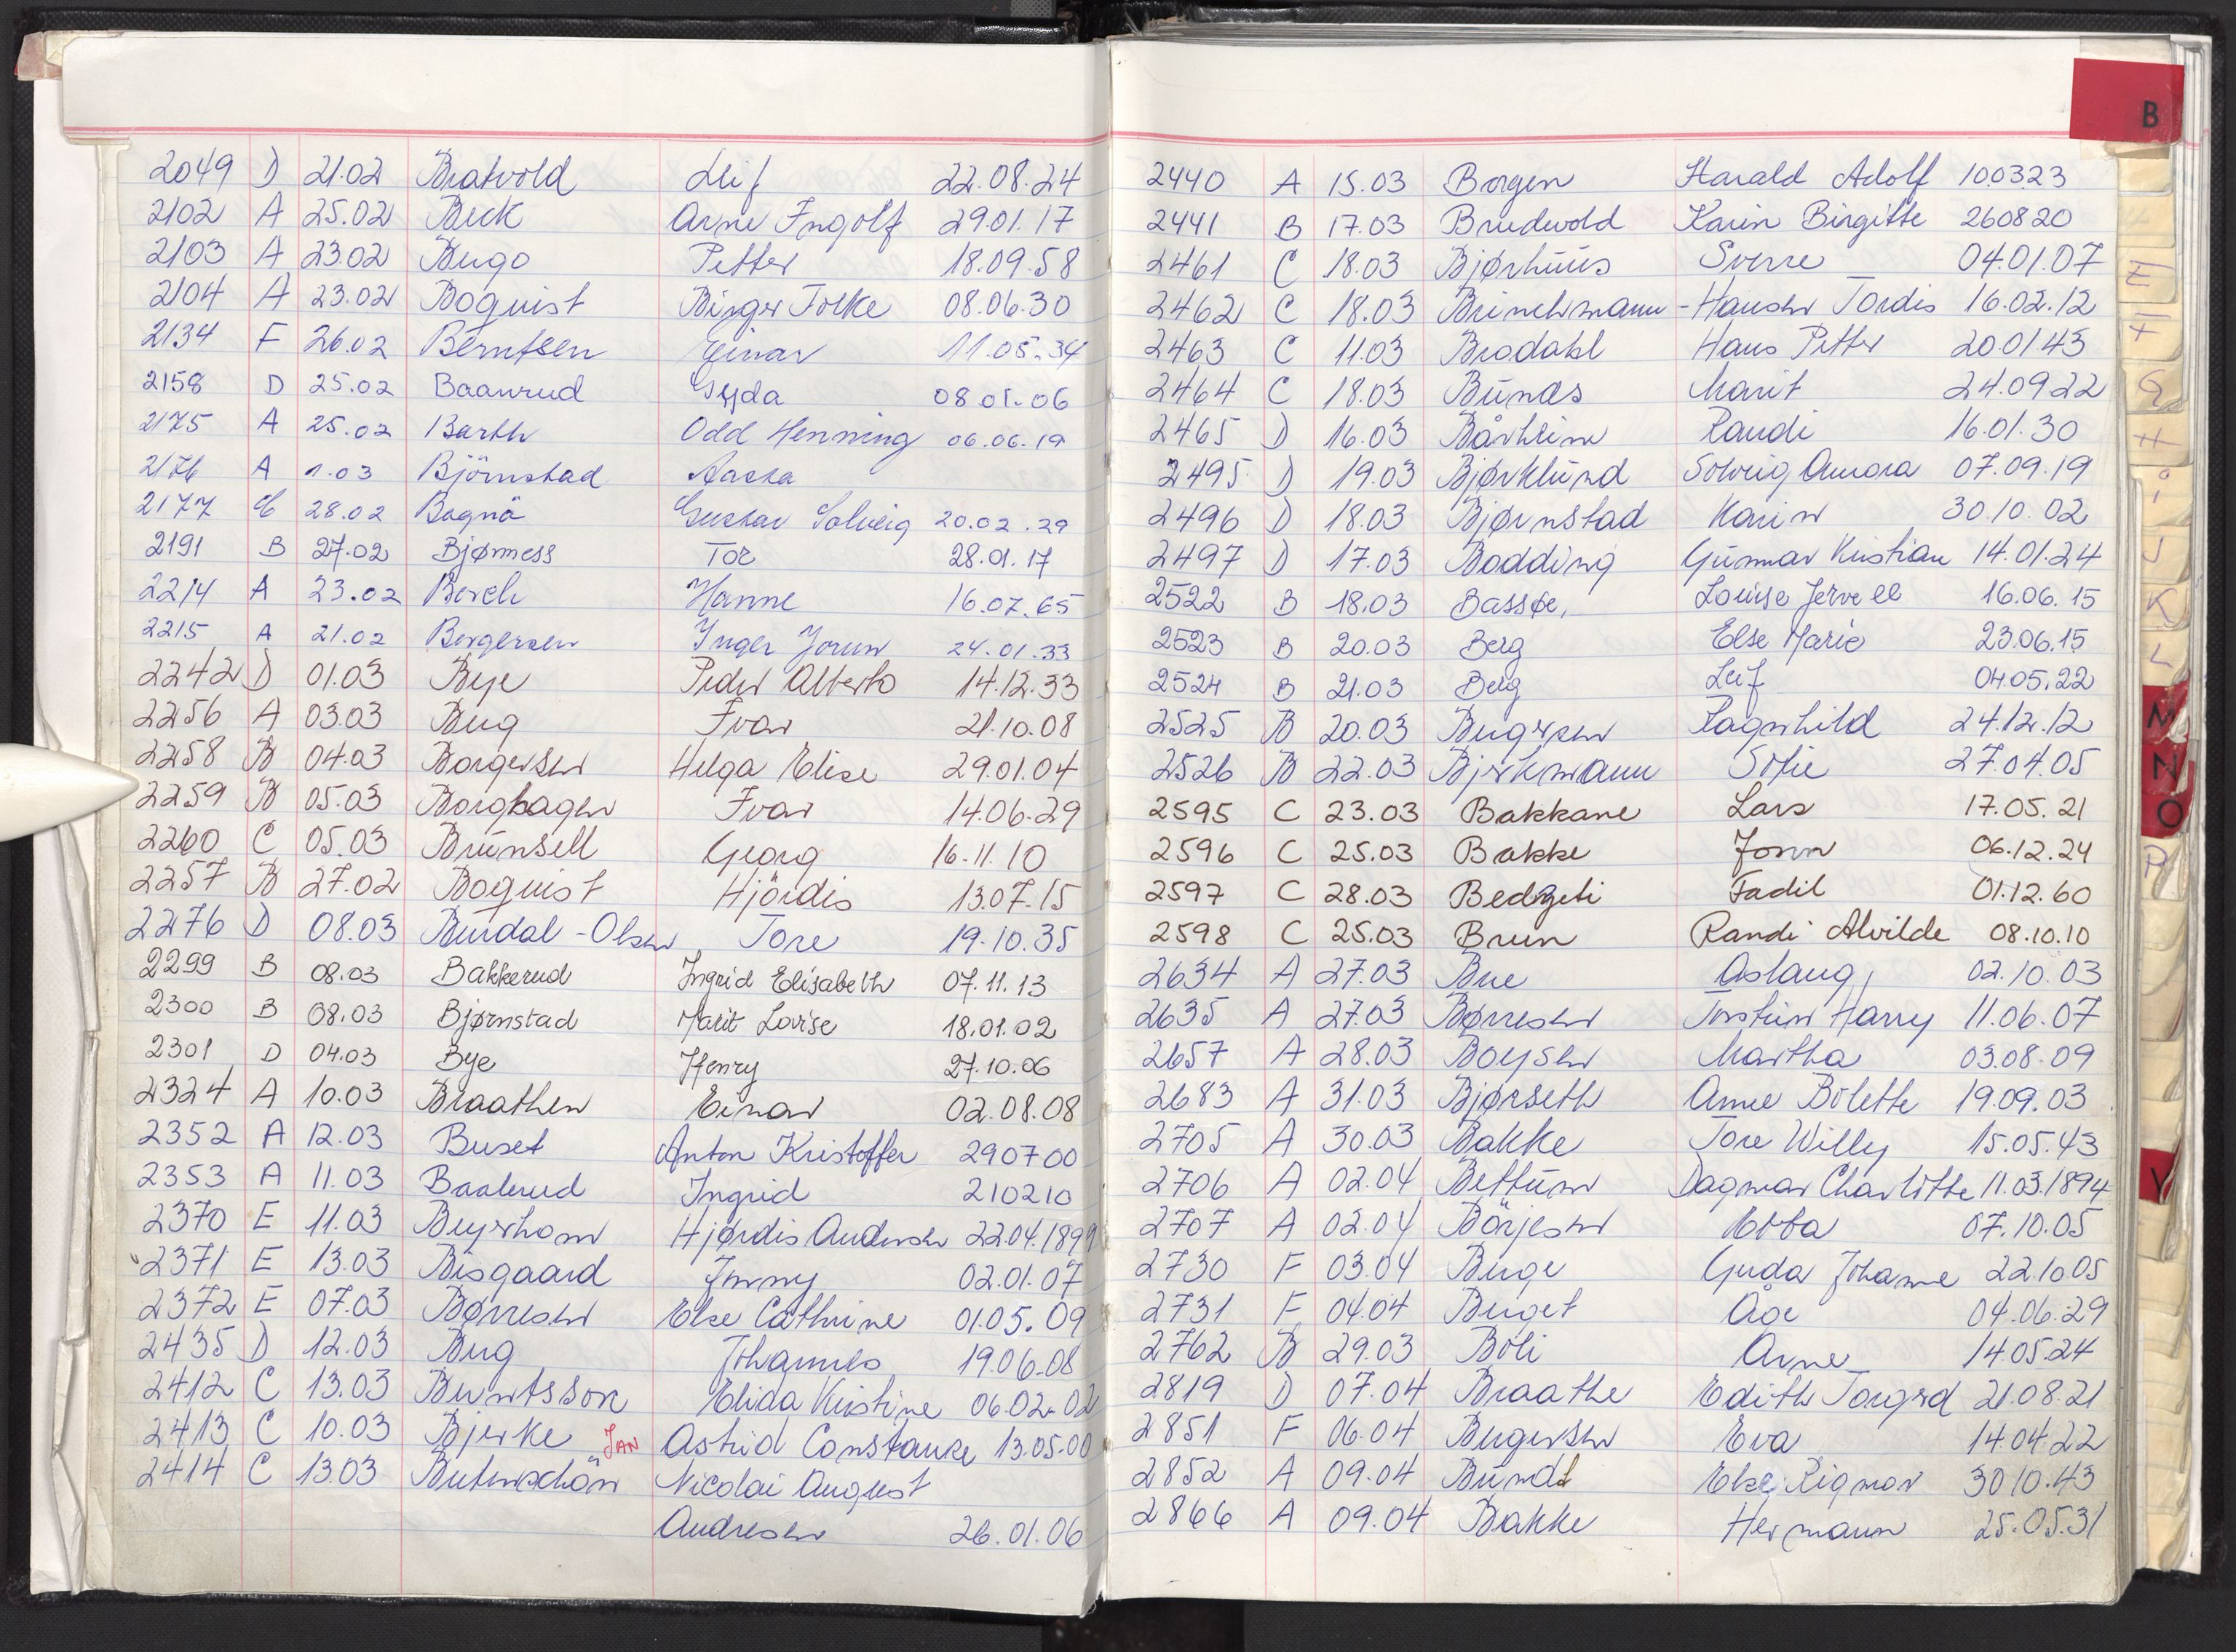 2049 D 21.02 Bratvold Leif 22.08.24
2102 A 25.02 Beck Arne Ingolf 29.01.17
2103 A 23.02 Bugo Petter 18.09.58
2104 A 23.02 Boquist Birger Folke 08.06.30
2134 F 26.02 Berntsen Einar 11.05.34
2158 D 25.02 Baanrud Gyda 08.01.06
2175 A 25.02 Barth Odd Henning 06.06.19
2176 A 1.03 Björnstad Aasta
2177 C 28.02 Bagnå Gustav Solveig 20.02.29
2191 B 27.02 Bjørness Tor 28.01.17
2214 A 23.02 Berch Hanne 16.07.65
2215 A 21.02 Bergersen Inger Jorun 24.01.33
2242 D 01.03 Bye Peder Alberto 14.12.33
2256 A 03.03 Berg Ivar 21.10.08
2258 B 04.03 Borgersen Helga Elise 29.01.04
2259 B 05.03 Borghagen Ivar 14.06.29
2260 C 05.03 Brunsell Georg 16.11.10
2257 B 27.02 Boquist Hjördis 13.07.15
2276 D 08.03 -Olsen Tore 19.10.35
2299 B 08.03 Bakkerud Ingrid Elisabeth 07.11.13
2300 B 08.03 Bjørnstad Marit Lovise 18.01.02
2301 D 04.03 Bye Henry 27.10.06
2324 A 10.03 Braathen Einar 02.08.08
2352 A 12.03 Buset Anton Kristoffer 290700
2353 A 11.03 Baalerud Ingrid 210210
2370 E 11.03 Hjørdis Andersen 22.04.1899
2371 E 13.03 Bisgaard Jenny 02.01.07
2372 E 07.03 Børresen Else Cathrine 01.05.09
2435 D 12.03 Berg Johannes 19.06.08
2412 C 13.03 Berntsson Elida Kristine 06.02.02
2413 C 10.03 Bjerke JAN Astrid Constance 13.05.00
2414 C 13.03 Butenschön Nicolai August
Andresen 26.01.06
B
2440 A 15.03 Borgen Harald Adolf 100323
2441 B 17.03 Bredvold Karin Birgitte 260820
2461 C 18.03 Bjørhuus Sverre 04.01.07
2462 C 18.03 Brinchmann-Hansen Tordis 16.02.12
2463 C 11.03 Brodahl Hans Petter 20.01.43
2464 C 18.03 Bunæs Marit 24.09.22
2465 D 16.03 Bårheim Randi 16.01.30
2495 D 19.03 Bjørklund Solveig Aurora 07.09.19
2496 D 18.03 Bjørnstad Karin 30.10.02
2497 D 17.03 Bødding Gunnar Kristian 14.01.24
2522 B 18.03 Bassøe, Louise Jervell 16.06.15
2523 B 20.03 Berg Else Marie 23.06.15
2524 B 21.03 Berg Leif 04.05.22
2525 B 20.03 Bergersen Ragnhild 24.12.12
2526 B 22.03 Bjerkmann Sofie 27.04.05
2595 C 23.03 Bakkane Lars 17.05.21
2596 C 25.03 Bakke Jorun 06.12.24
2597 C 28.03 Bedzeti Fadil 01.12.60
2598 C 25.03 Brun Randi Alvilde 08.10.10
2634 A 27.03 Bue Aslaug 02.10.03
2635 A 27.03 Børresen Torstein Harry 11.06.07
2657 A 28.03 Boysen Martha 03.08.09
2683 A 31.03 Bjørseth Anne Bolette 19.09.03
2705 A 30.03 Bakke Tore Willy 15.05.43
2706 A 02.04 Bettum Dagmar Charlotte 11.03.1894
2707 A 02.04 Börjesen Ebba 07.10.05
2730 F 03.04 Berge Gerda Johanne 22.10.05
2731 F 04.04 Berget Åge 04.06.29
2762 B 29.03 Boli Arne 14.05.24
2819 D 07.04 Braathe Edith Torgerd 21.08.21
2851 F 06.04 Bergersen Eva 14.04.22
2852 A 09.04 Bundt Else Rigmor 30.10.43
2866 A 09.04 Bakke Hermann 25.05.31
E
F
G
H
I
J
K
L
M
N
O
P
V